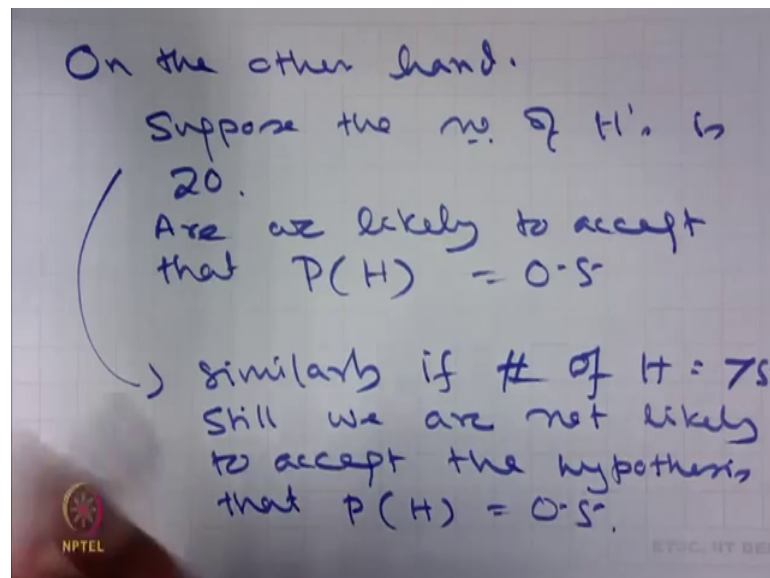 On the other hand.
Suppose the no. of H's is
20.
Are we likely to accept
that P(H) = 0.5
Similarly if # of H = 75
Still we are not likely
to accept the hypothesis
that P(H) = 0.5.
NPTEL
ETSC, IIT DEL